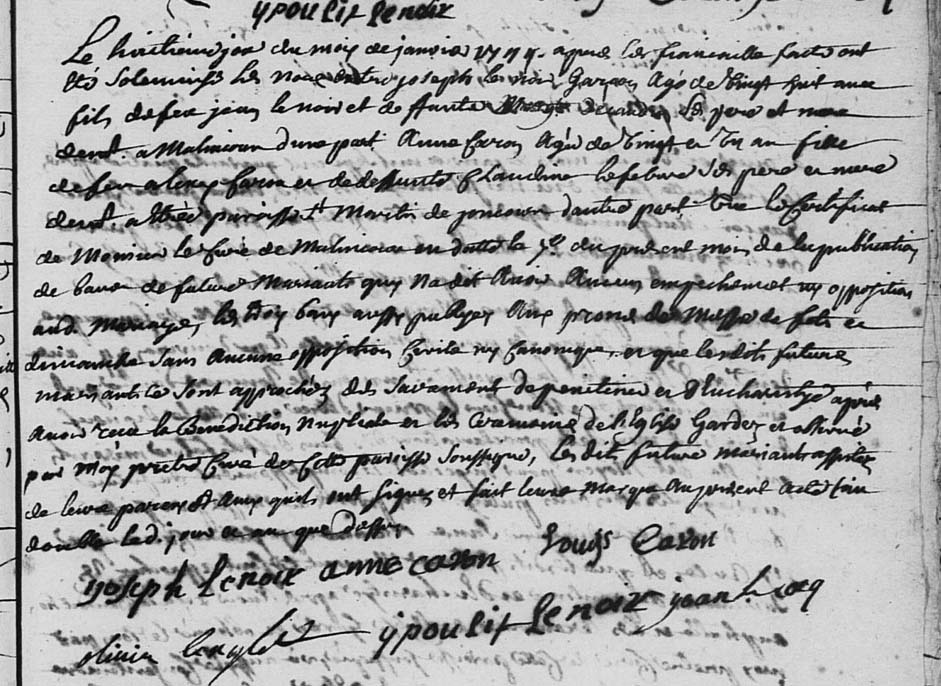 ypoulit lenoir
Le huitieme jour du mois de janvier apres les fiancaille faite ont
ete Solemnisé les noces entre joseph lenoir Garçon Agé de vingt huit ans
fils de feu jean lenoir et de ses pere et mere
demt. a Malincour d'une part Anne Caron Agée de vingt et un an fille
de feu Caron et de deffunte Claudine lefebvre ses pere et mere
demt. a paroisse St Martin de joncour d'autre part, vue le Certificat
de Monsieur le Curé de Malincour en datte le 7e. du present mois de la publication
de bans de future Mariants qui n'a dit Avoir Aucun empechement ny opposition
aud. Mariage, les trois bans aussy publiez Aux prones de Messe de fete et
dimanche sans Aucune opposition Civile ny Canonique, et que lesdits future
mariants ce sont approchéz des Sacrament de penitence et d'Eucharistye après
Avoir recu la Benediction Nuptiale et les Ceremonie de l'Eglise Gardez et observé
par moy pretre Curé de cette paroisse Soussigné, lesdits future mariants assistez
de leurs parens et Amy quils ont signez et fait leurs Marque Au present acte fait
double led. jour et an que dessus
joseph lenoir anne caron Louis Caron
ypoulit lenoir jean
olivier lenglet